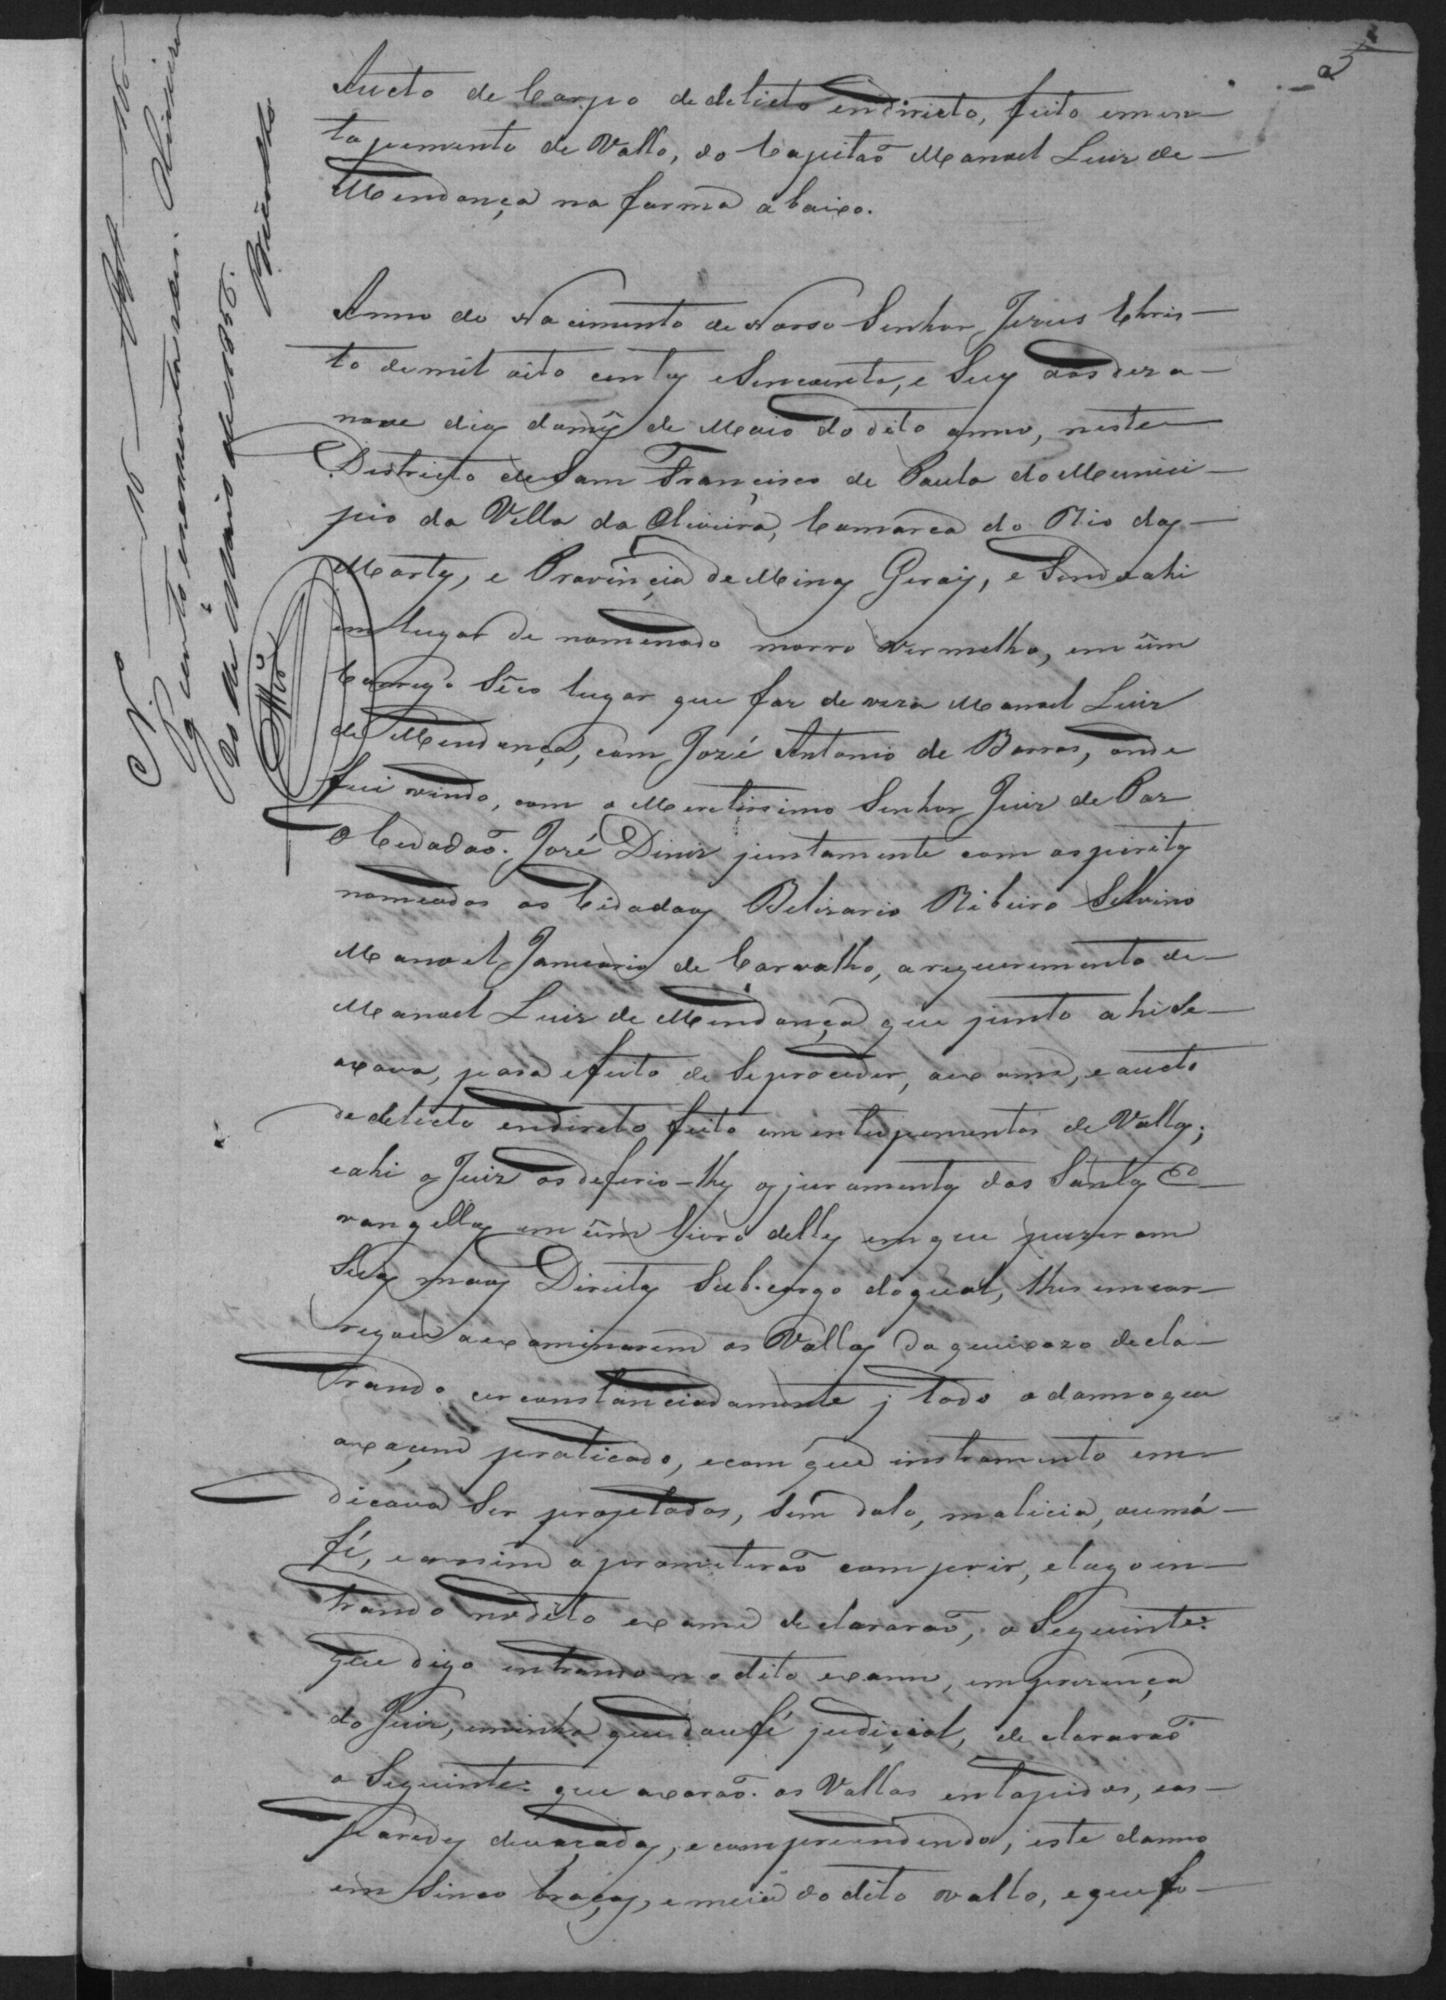 2
Aucto de Corpo de delicto endirecto, feito em en-
tapemento de Vallo, do Capitaõ Manoel Luis de
Mendança na forma abaixo.
Anno do Nacimento de Nosso Senhor Jezus Chris-
to de mil oito centos e Sincoenta, e Seis aos deza-
nove dias do mês de Maio do dito anno, neste
Districto de Sam Francisco de Paula do Munici-
pio da Villa da Oliveira, Camarca do Rio das
Mortes, e Provinçia de Minas Gerais, e Sendo ahi
em lugar de nomenado morro vermelho, em ûm
Corrego Sêco lugar que faz deveza Manoel Luis
de Mendança, com José Antonio de Barros, onde
fui vindo, com o Meretissimo Senhor Juiz de Paz
o Cidadaõ José Diniz juntamente com os peritos
nomeados os Cidadaos Belizario Ribeiro Selverio
Manoel Januario de Carvalho, a requerimento de
Manoel Luis de Mendança que junto ahi se
axava, para efeito de Se proceder, a exame, e aucto
de delicto endirecto feito em entupementos de Vallos;
e ahi o Juiz os deferio-lhes o juramento dos Santos E-
vangellos em ûm livro delles em que puzeram
Suas maos Direitas Sub cargo do qual, lhes encar-
regou a examinarem os Vallos da queixozo decla-
rando cerconstançiadamente; todo o damno que
axaçem praticado, e com que instromento em-
dicava Ser projetados, Sem dolo, malicia, ou má
fé, e assim o prometeraõ comprir, e logo in-
trando no dito exame declararaõ, o Seguinte:
que digo entrando no dito exame, em prezença
do Juiz, e minha que dou fé judiçial, declararaõ
o Seguinte: que axaraõ os Vallos entapidos, e as
paredes devaçadas, e comprendendo, este damno
em Sinco braças, e meia do dito vallo, e que fo-
N. 10 Rs 160
Pg cento e secenta reis. Oliveira
20 de Maio de 1856.